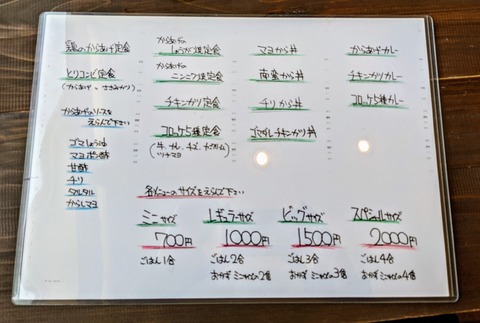 鶏のからあげ定食
とりコンビ定食
(からあげ と ささみカツ)
からあげのソースを
えらんで下さい
ゴマしょうゆ
マヨポン酢
甘酢
チリ
タルタル
からしマヨ
からあげの
しょうが焼定食
からあげの
ニンニク焼定食
チキンカツ定食
コロッケ5種定食
ツナマヨ
マヨから丼
南蛮から丼
チリから丼
ゴマダレチキンカツ丼
からあげカレー
チキンカツカレー
コロッケ5種カレー
各メニューのサイズをえらんで下さい
ミニサイズ
700円
ごはん1合
レギュラーサイズ
1000円
ごはん2合
おかずミニサイズの2倍
ビッグサイズ
1500円
ごはん3合
おかずミニサイズの3倍
スペシャルサイズ
2000円
ごはん4合
おかずミニサイズの4倍